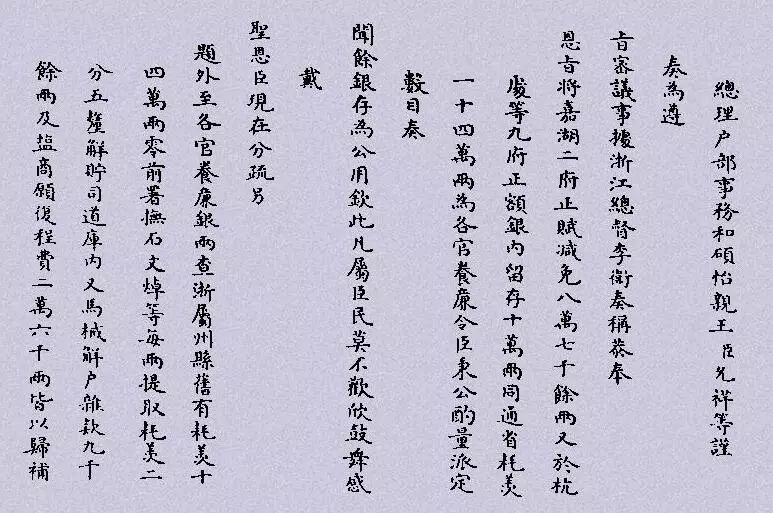 總理户部事務和碩怡親王臣允祥等謹
奏為遵
旨審議事據浙江總督李衛奏稱恭奉
恩旨將嘉湖二府正賦減免八萬七千餘兩又於杭
處等九府正額銀内留存十萬兩同通省耗羡
一十四萬兩為各官養廉令臣秉公酌量派定
數目奏
聞餘銀存為公用欽此凡屬臣民莫不歡欣鼓舞感
戴
聖恩臣現在分疏另
題外至各官養廉銀兩查浙屬州縣舊有耗羡十
四萬兩零前署撫石文焯等每兩提取耗羡二
分五釐解貯司道庫内又馬械解户雜款九千
餘兩及塩商願復程費二萬六千兩皆以歸補